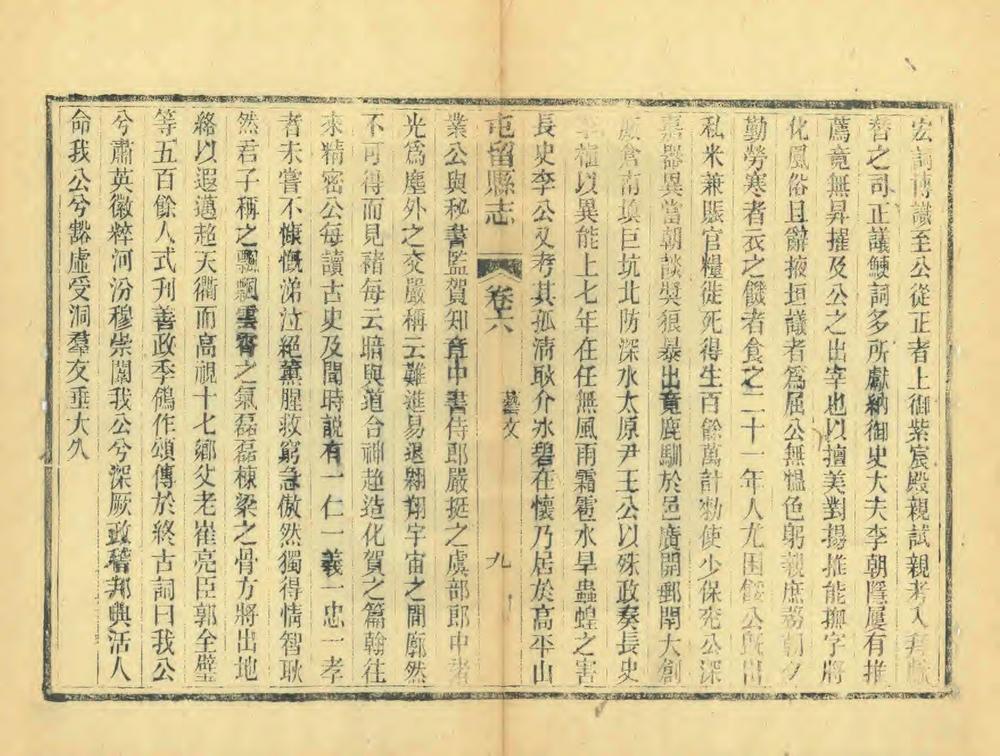 宏詞博識至公從正者上御紫宸殿親試親考入
替之司正議鯁詞多所獻納御史大夫李朝隱屢有推
薦竟無昇擢及公之出宰也以擅美對揚推能撫字將
化風俗且辭掖垣議者爲屈公無慍色躬親庶務朝夕
勤勞寒者衣之餓者食之二十一年人尤困餒公旣出
私米兼賑官糧徙死得生百餘萬計勑使少保兖公深
嘉器異當朝談獎狼暴出竟鹿馴於邑廣開郵閈大創
倉南塡巨坑北防深水太原尹王公以殊政奏長史
權以異能上七年在任無風雨霜雹水旱蟲蝗之害
長史李公又考其孤淸耿介冰碧在懷乃居於高平山
屯留縣志 卷六 藝文 九
業公與秘書監賀知章中書侍郎嚴挺之虞部郎中褚
光爲塵外之交嚴稱云難進易退翱翔宇宙之間廓然
不可得而見褚每云暗與道合神趣造化賀之篇翰往
來精密公每讀古史及聞時說有一仁一義一忠一孝
者未嘗不慷慨涕泣絕薰腥救窮急傲然獨得情智耿
然君子稱之飄飄雲霄之氣磊磊棟梁之骨方將出地
絡以遐邁趋天衢而高視十七鄉父老崔亮臣郭全璧
等五百餘人式刊善政季鴒作頌傳於終古詞曰我公
兮肅英徽粹河汾穆崇闈我公兮深厥政礬邦輿活人
命我公兮豁虛受洞羣友垂大久